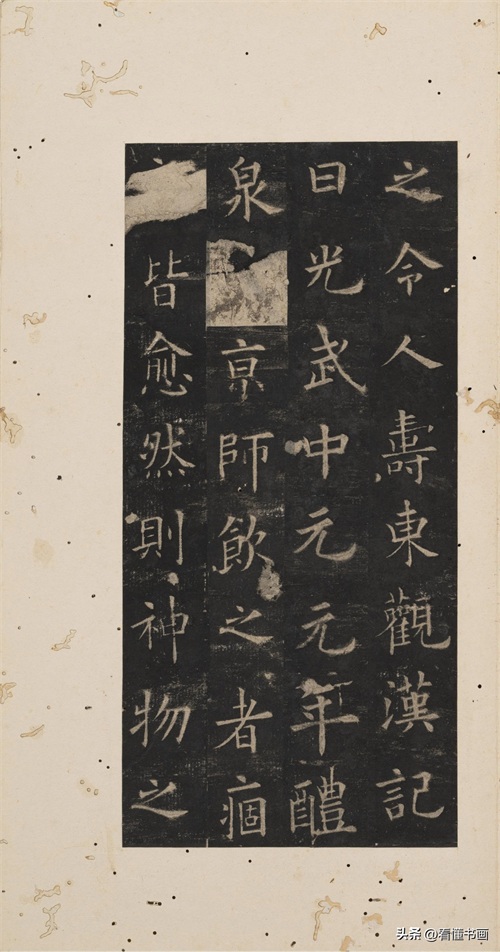 之令人壽東觀漢記
曰光武中元元年醴
泉京師飲之者痼
皆愈然則神物之
头条 @看懂书画